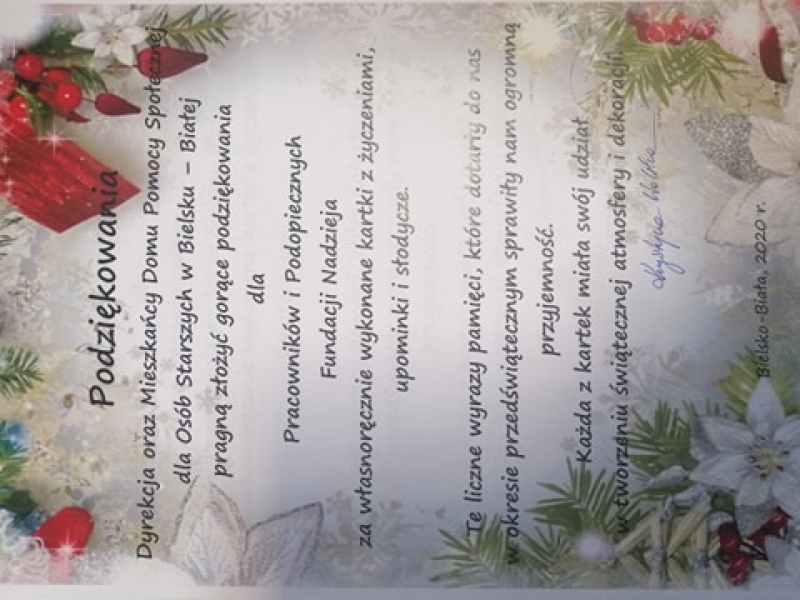 Podziękowania
Dyrekcja oraz Mieszkańcy Domu Pomocy Społecznej
dla Osób Starszych w Bielsku – Białej
pragną złożyć gorące podziękowania
dla
Pracowników i Podopiecznych
Fundacji Nadzieja
za własnoręcznie wykonane kartki z życzeniami,
upominki i słodycze.
Te liczne wyrazy pamięci, które dotarły do nas
w okresie przedświątecznym sprawiły nam ogromną
przyjemność.
Każda z kartek miała swój udział
w tworzeniu świątecznej atmosfery i dekoracji
Bielsko-Biała, 2020 r.